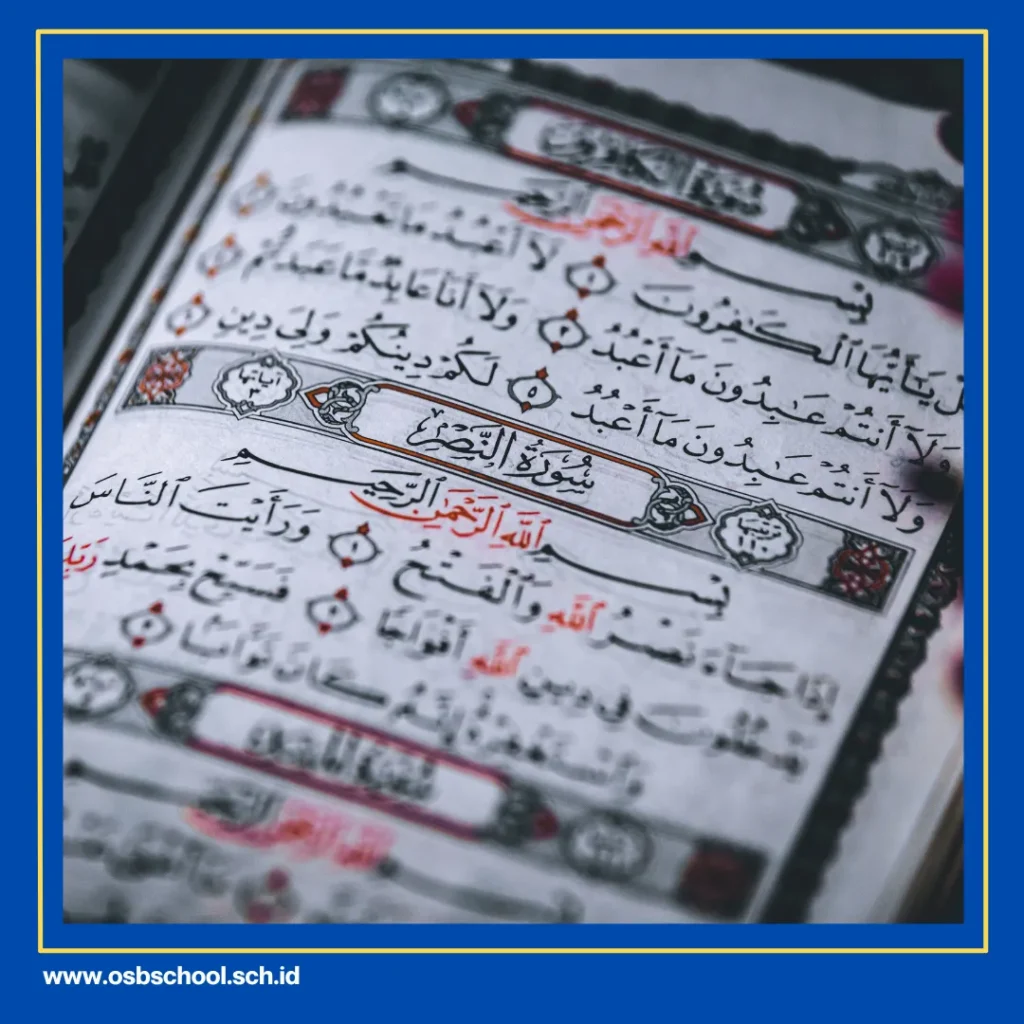 سُورَةُ الكَافِرُونَ
بِسْمِ ٱللَّهِ ٱلرَّحْمَٰنِ ٱلرَّحِيمِ
قُلْ يَٰٓأَيُّهَا ٱلْكَٰفِرُونَ ١ لَآ أَعْبُدُ مَا تَعْبُدُونَ ٢
وَلَآ أَنتُمْ عَٰبِدُونَ مَآ أَعْبُدُ ٣ وَلَآ أَنَا۠ عَابِدٌ مَّا عَبَدتُّمْ ٤
وَلَآ أَنتُمْ عَٰبِدُونَ مَآ أَعْبُدُ ٥ لَكُمْ دِينُكُمْ وَلِىَ دِينِ ٦
ترتيبها ١١٠ سُورَةُ النَّصْرِ آياتها ٣
بِسْمِ ٱللَّهِ ٱلرَّحْمَٰنِ ٱلرَّحِيمِ
إِذَا جَآءَ نَصْرُ ٱللَّهِ وَٱلْفَتْحُ ١ وَرَأَيْتَ ٱلنَّاسَ
يَدْخُلُونَ فِى دِينِ ٱللَّهِ أَفْوَاجًا ٢ فَسَبِّحْ بِحَمْدِ رَبِّكَ
وَٱسْتَغْفِرْهُ إِنَّهُۥ كَانَ تَوَّابًۢا ٣
بِسْمِ ٱللَّهِ ٱلرَّحْمَٰنِ ٱلرَّحِيمِ
www.osbschool.sch.id